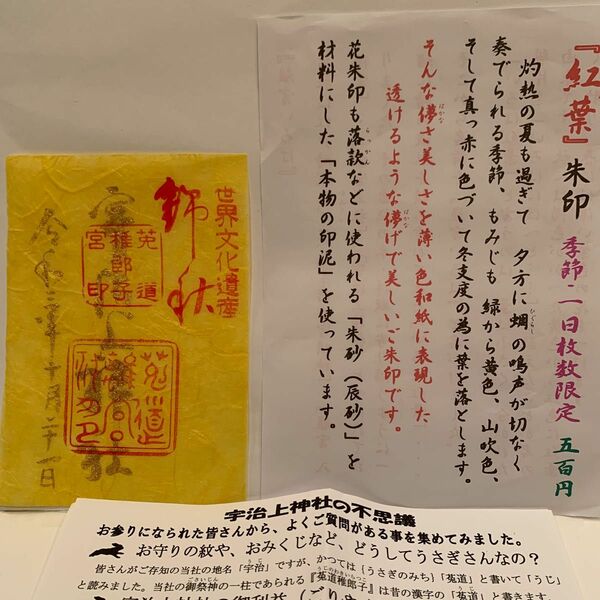 『紅葉』朱印 季節一日枚数限定 五百円
灼熱の夏も過ぎて 夕方に蜩の鳴声が切なく
奏でられる季節、もみじも 緑から黄色、山吹色、
そして真っ赤に色づいて冬支度の為に葉を落とします。
そんな儚さ美しさを薄い色和紙に表現した
透けるような儚げで美しいご朱印です。
花朱印も落款などに使われる「朱砂(辰砂)」を
材料にした「本物の印泥」を使っています。
世界文化遺産
錦秋
菟道
稚郎子
宮印
宇治上神社
宇治上神社の不思議
お参りになられた皆さんから、よくご質問がある事を集めてみました。
お守りの紋や、おみくじなど、どうしてうさぎさんなの?
皆さんがご存知の当社の地名「宇治」ですが、かつては(うさぎのみち)「菟道」と書いて「うじ」
と読みました。当社の御祭神の一柱であられる『菟道稚郎子』は昔の漢字の「菟道」と書きます。